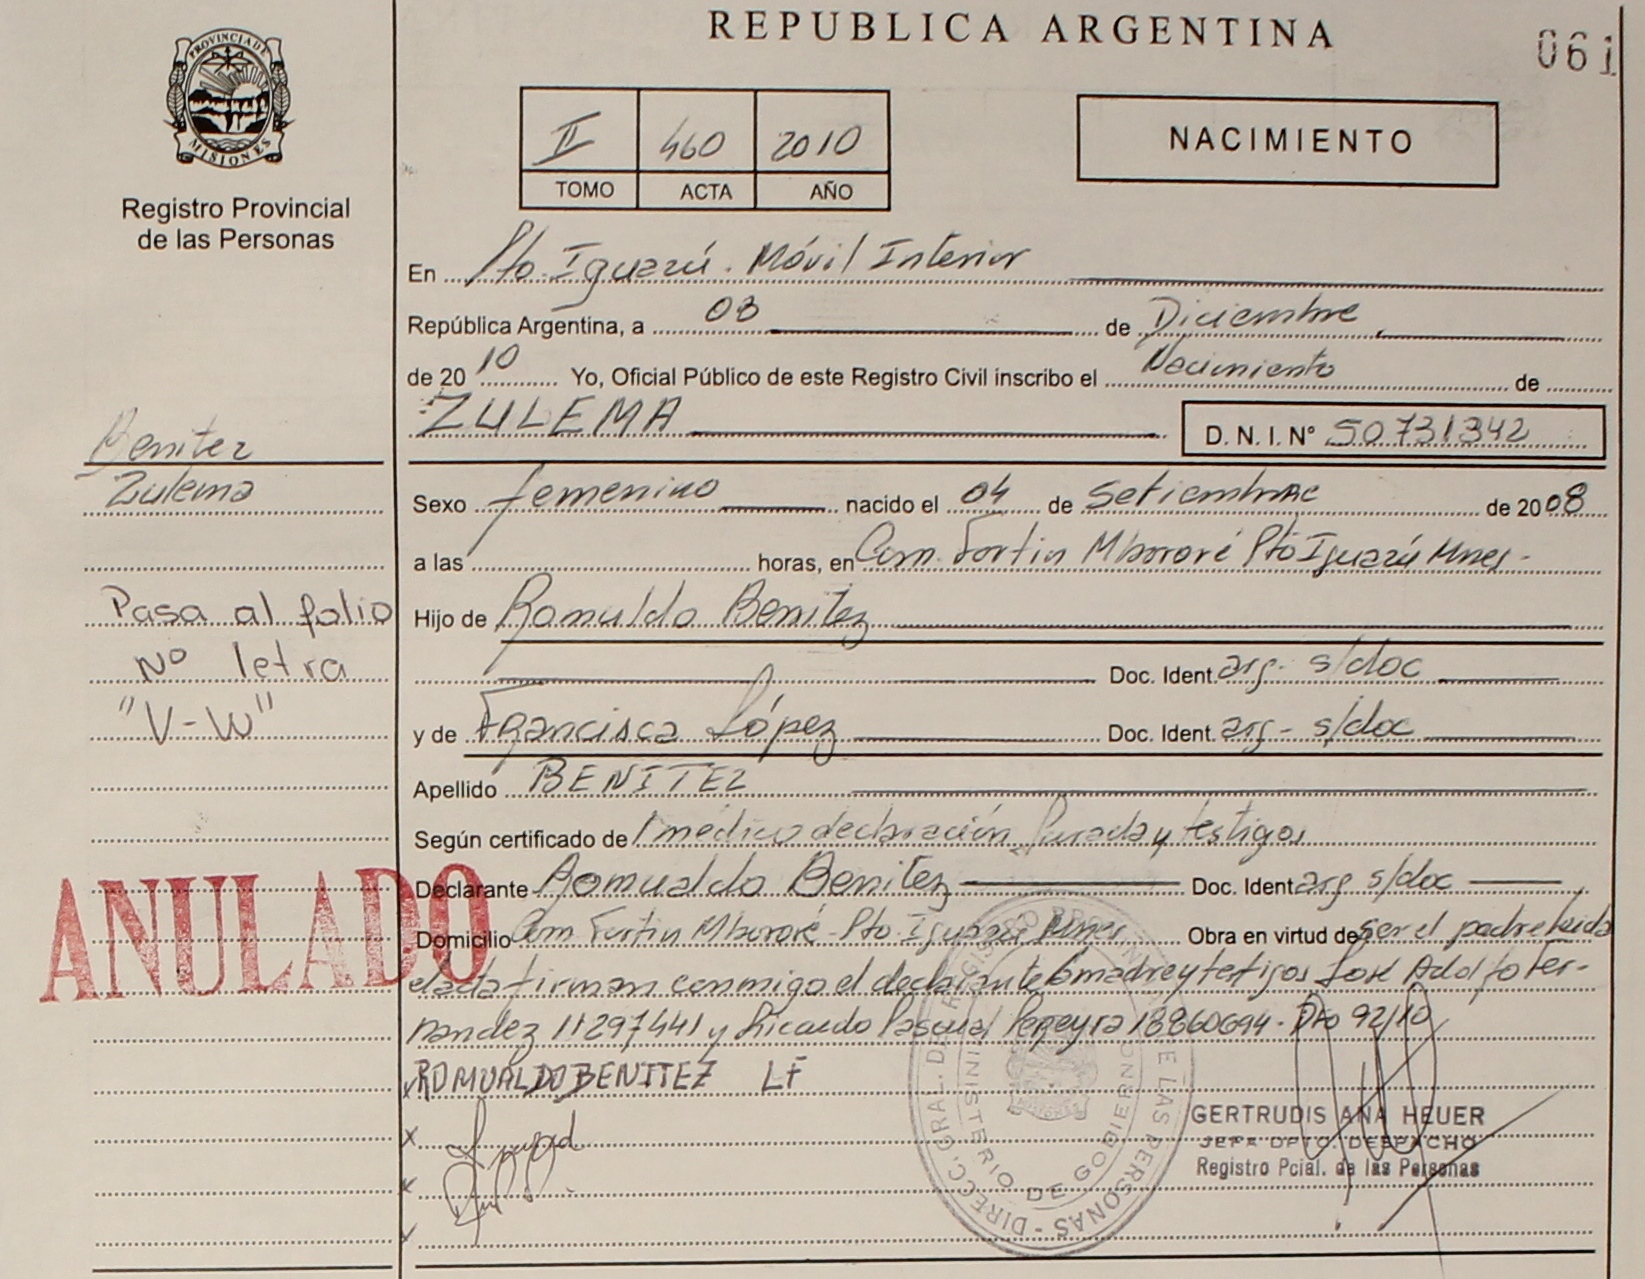 REPUBLICA ARGENTINA
061
PROVINCIA DE MISIONES
Registro Provincial
de las Personas
II 460 2010
TOMO ACTA AÑO
NACIMIENTO
En Pto. Iguazú. Móvil Interior
República Argentina, a 03 de Diciembre
de 2010 Yo, Oficial Público de este Registro Civil inscribo el Nacimiento de
ZULEMA D. N. I. Nº 50731342
Benitez
Zulema
Sexo femenino nacido el 04 de Setiembre de 2008
a las horas, en Com. Fortin Mbororé Pto Iguazú Mnes-
Pasa al folio
Nº letra
"V-W"
Hijo de Romualdo Benitez
Doc. Ident. arg- s/doc
y de Francisca López Doc. Ident. arg- s/doc
Apellido BENITEZ
Según certificado de 1 medico declaración Jurada y testigos
ANULADO
Declarante Romualdo Benitez Doc. Ident arg s/doc
Domicilio Com Fortin Mbororé - Pto. Iguazú Mnes Obra en virtud de ser el padre leida
el acta firman conmigo el declarante madre y testigos José Adolfo Fer-
nandez 11297441 y Ricardo Pascual Pereyra 18860694- Dto 92/10
x ROMUALDO BENITEZ LF
x
x
x
DIRECC. GRAL. DEL REGISTRO PROVINCIAL DE LAS PERSONAS -
MINISTERIO DE GOBIERNO
GERTRUDIS ANA HEUER
JEFA DPTO. DESPACHO
Registro Pcial. de las Personas